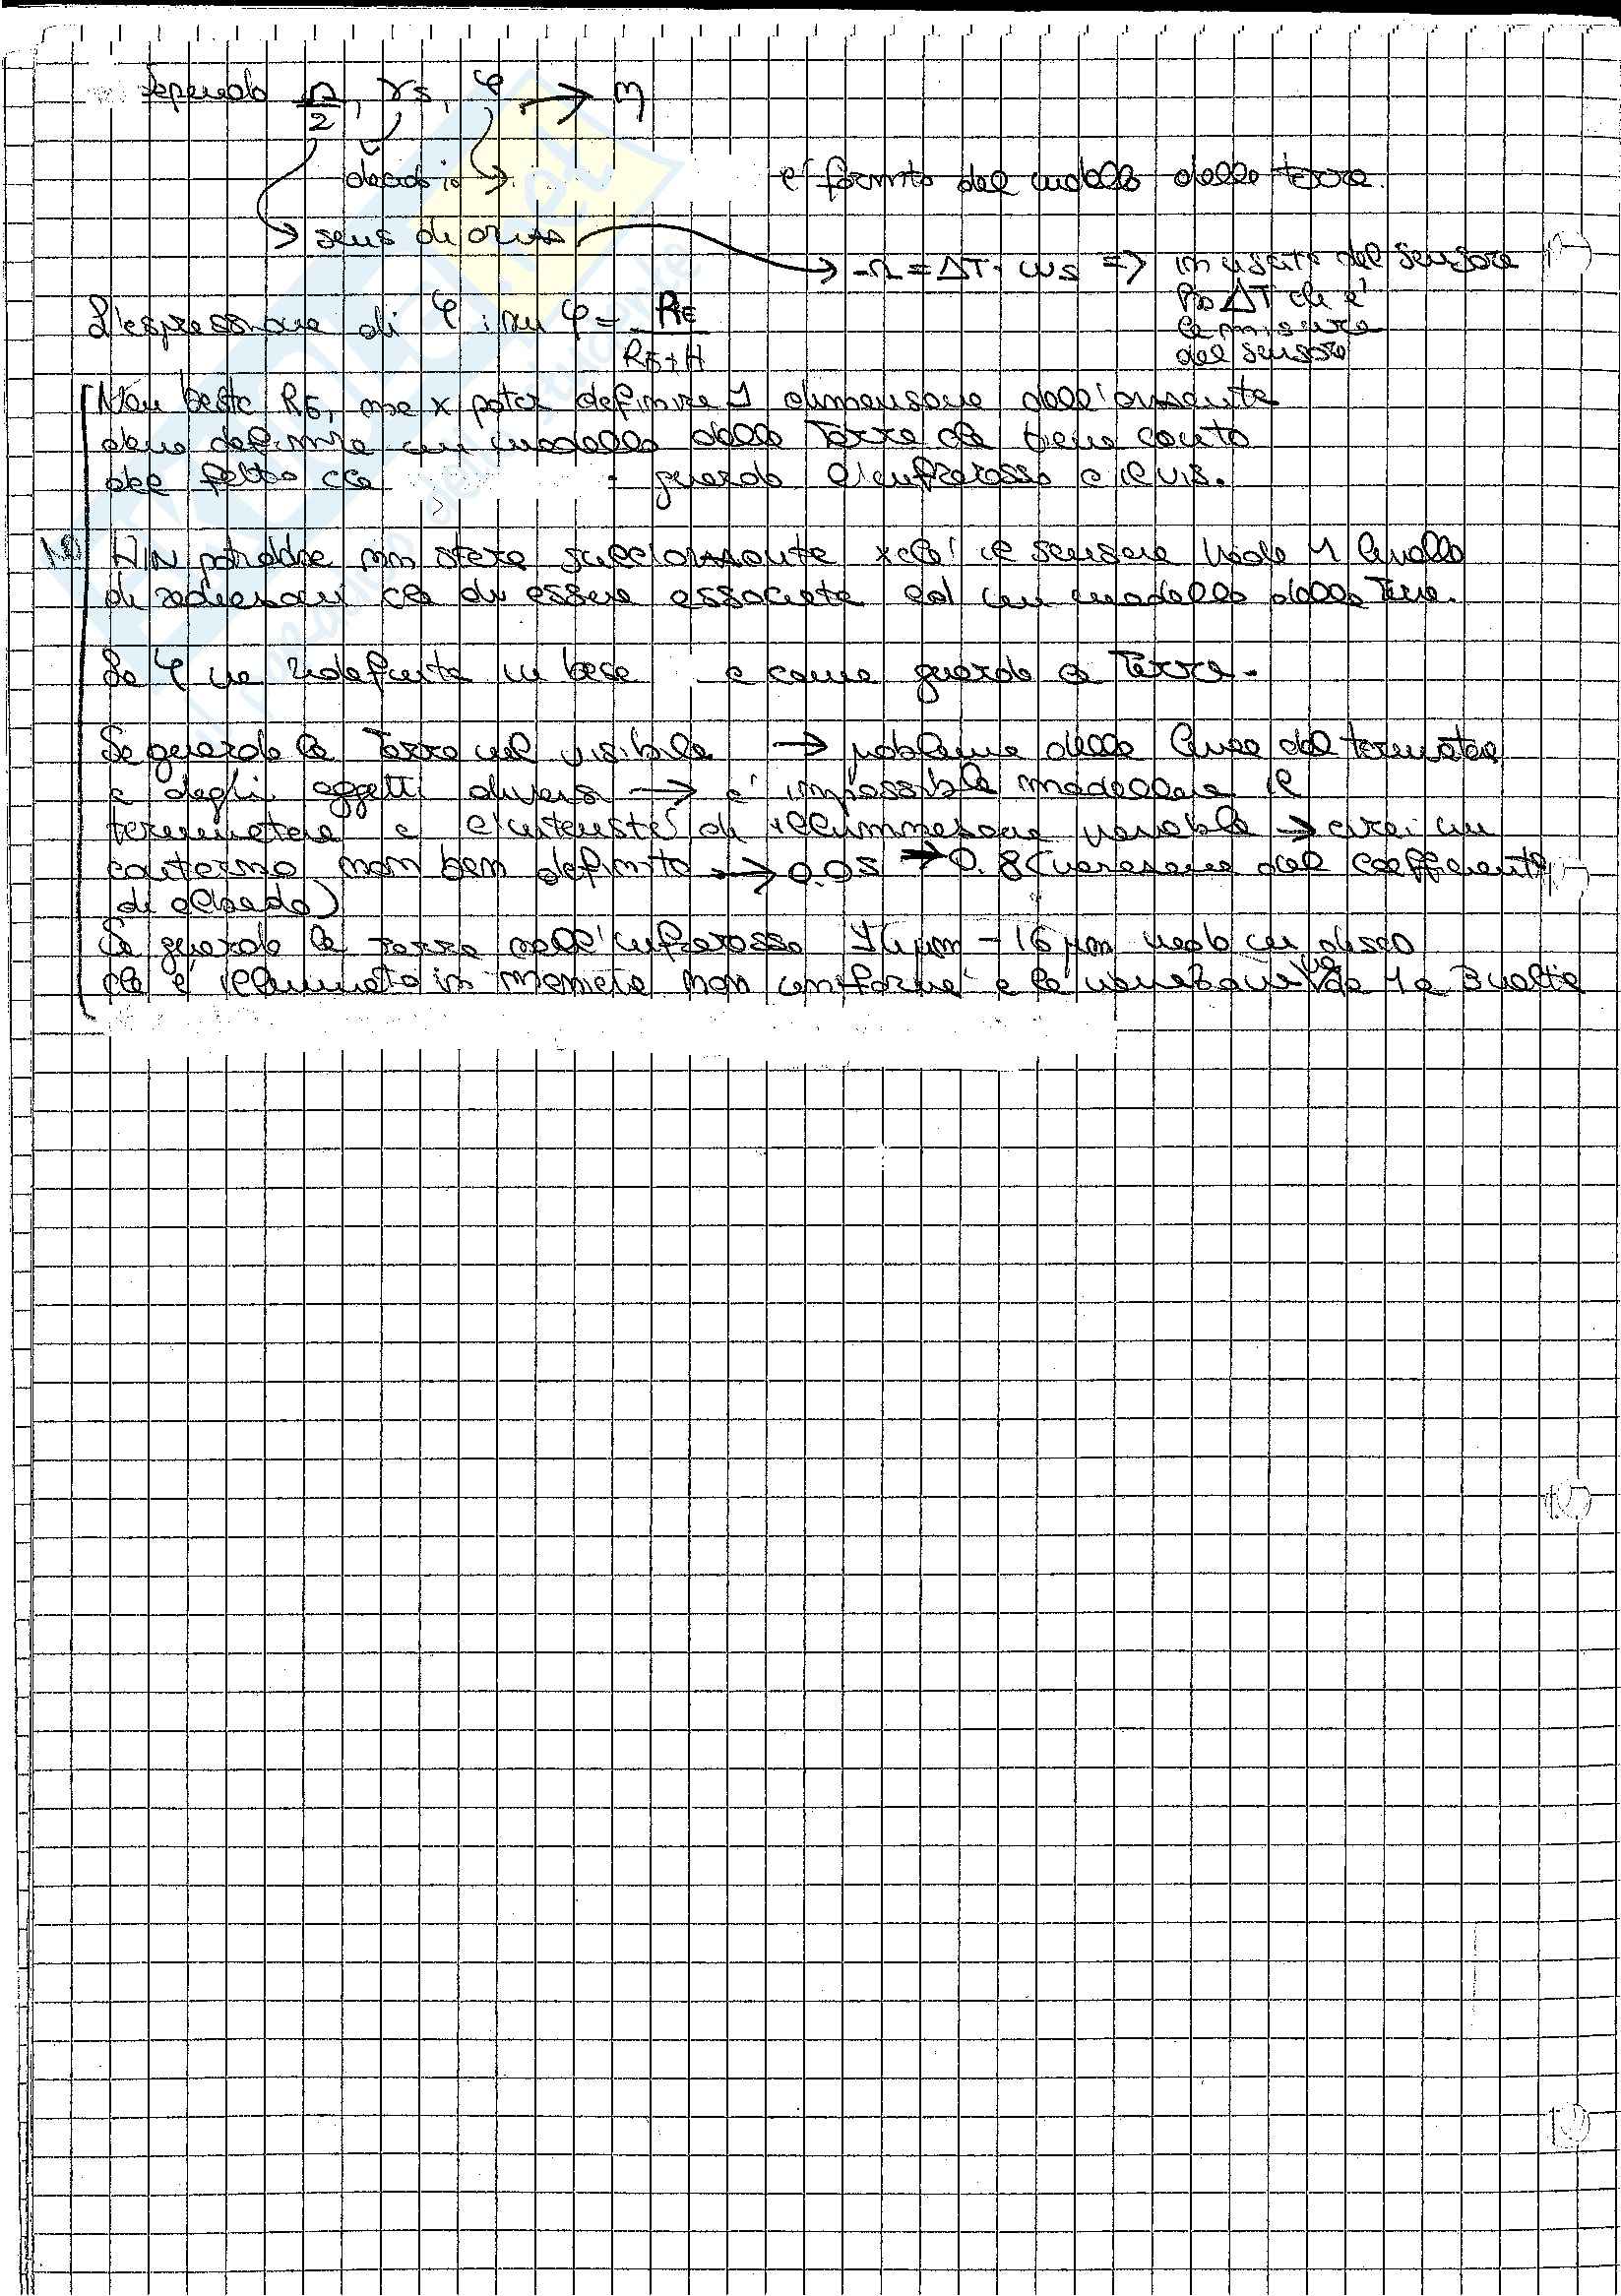 Sapendo Ω/2, γs, φ → η
decido io
è fornito dal modello della terra.
sens di orizz
Ω = ΔT · ωs => in uscita dal sensore
ho ΔT che è
la misura
del sensore
L'espressione di φ: sin φ = RE / RE+H
Non basta RE, ma x poter definire 1 dimensione dell'orizzonte
devo definire un modello della Terra che tiene conto
del fatto che guardo l'infrarosso o il VIS.
potrebbe non stare sull'orizzonte xché il sensore vede 1 livello
di radiazioni che dev essere associata ad un modello della Terra.
La φ va ridefinita in base a come guardo la Terra.
Se guardo la Terra nel visibile → problema della linea del terminatore
e degli oggetti diversi → è impossibile modellare il
terminatore e l'intensità di illuminazione variabile → avrei un
contorno non ben definito → 0.05 → 0.8 (variazione del coefficiente
di albedo)
Se guardo la terra nell'infrarosso 14 μm - 16 μm vedo un disco
che è illuminato in maniera non uniforme e la variazione va da 1 a 3 volte